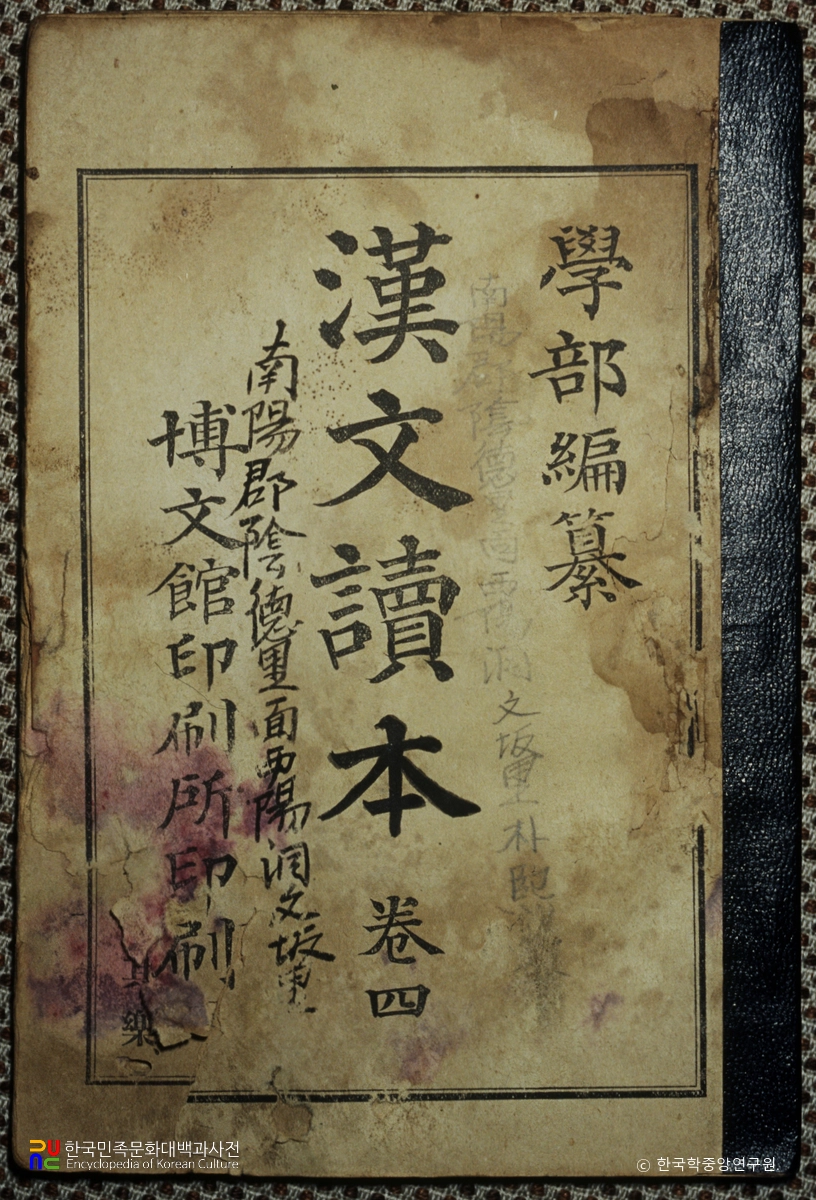 學部編纂
南陽郡陰德里面西陽洞文坂里朴
漢文讀本 卷四
南陽郡陰德里面西陽洞文坂里
博文館印刷所印刷
樂
한국민족문화대백과사전
Encyclopedia of Korean Culture
© 한국학중앙연구원